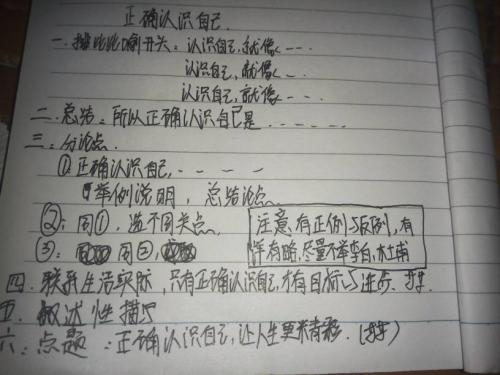 正确认识自己.
一. 排比比喻开头: 认识自己, 就像 ----
认识自己, 就像 ---
认识自己, 就像 ---
二. 总结: 所以正确认识自己是 ------
三: 分论点.
①正确认识自己, ----
举例说明, 总结论点
②: 同①, 选不同关点.
③: 同②,
注意: 有正例与反例, 有
详有略, 尽量不举李白, 杜甫
四. 联系生活实际, 只有正确认识自己, 才有目标与进步.
五. 叙述性描写
六: 点题: 正确认识自己, 让人生更精彩.